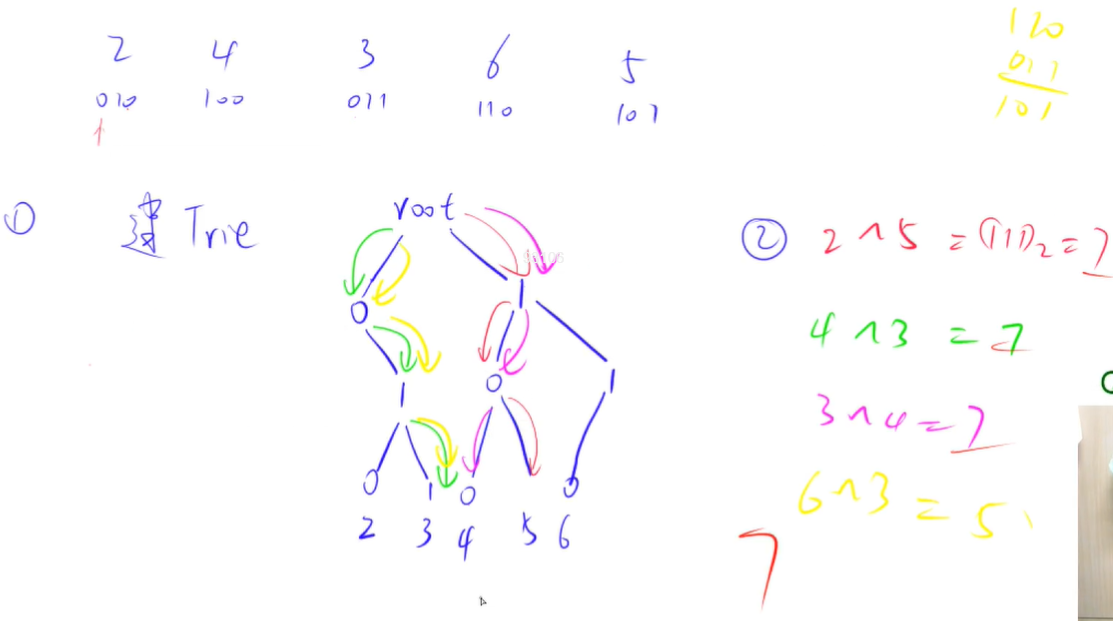 2 4 3 6 5
010 100 011 110 101
110
011
101
① 建 Trie
root
0 1
1 0 1
0 1 0 0
2 3 4 5 6
② 2^5 = (111)₂ = 7
4^3 = 7
3^4 = 7
6^3 = 5
7